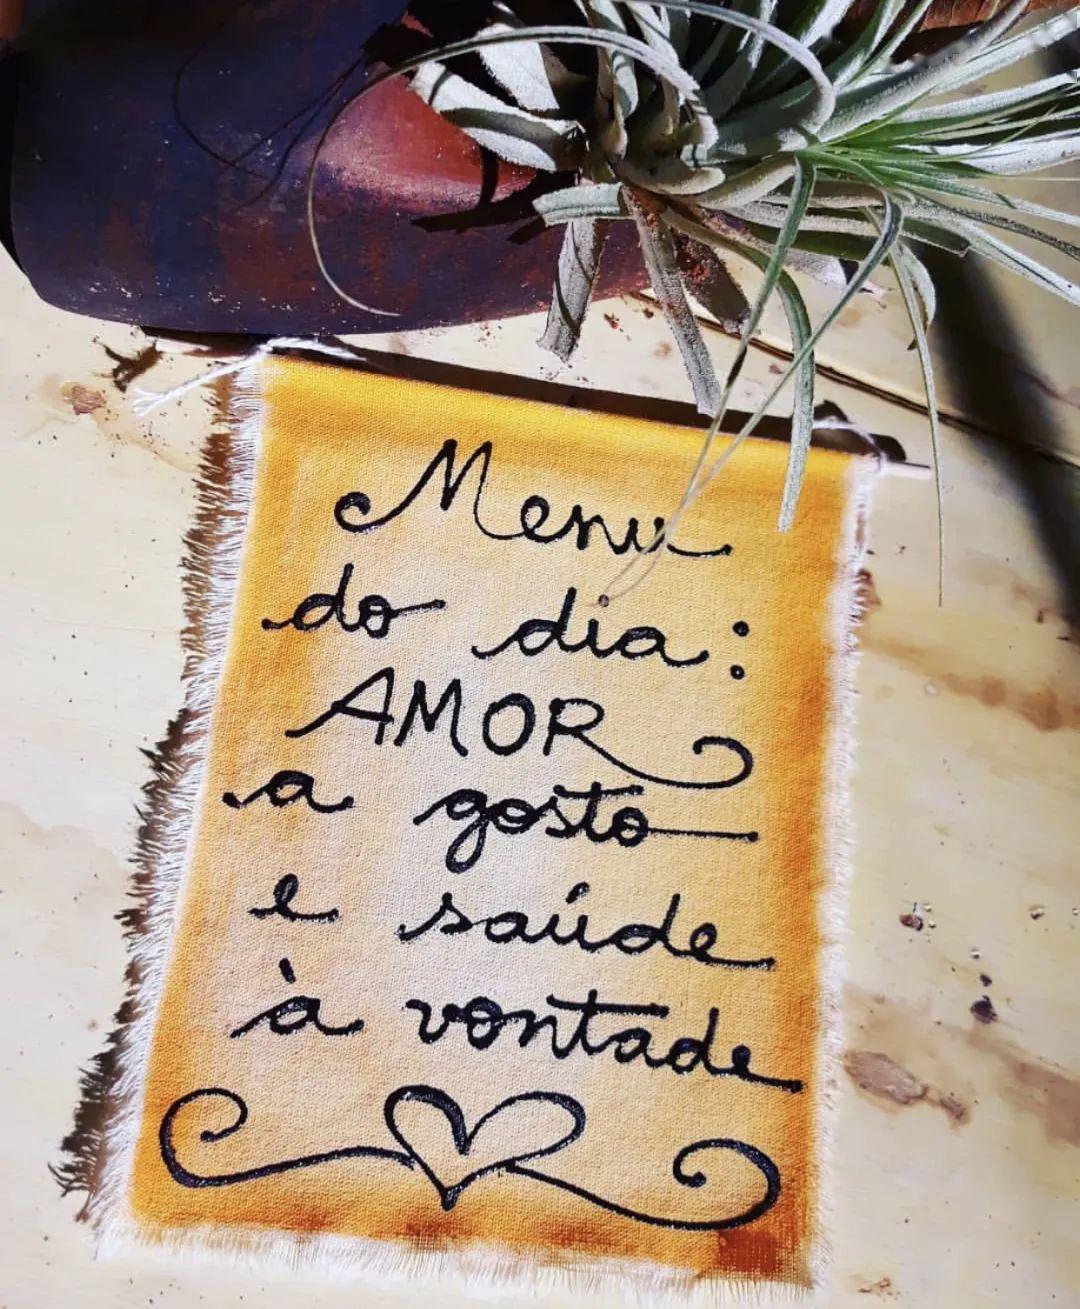 Menu
do dia:
AMOR
a gosto
e saúde
à vontade